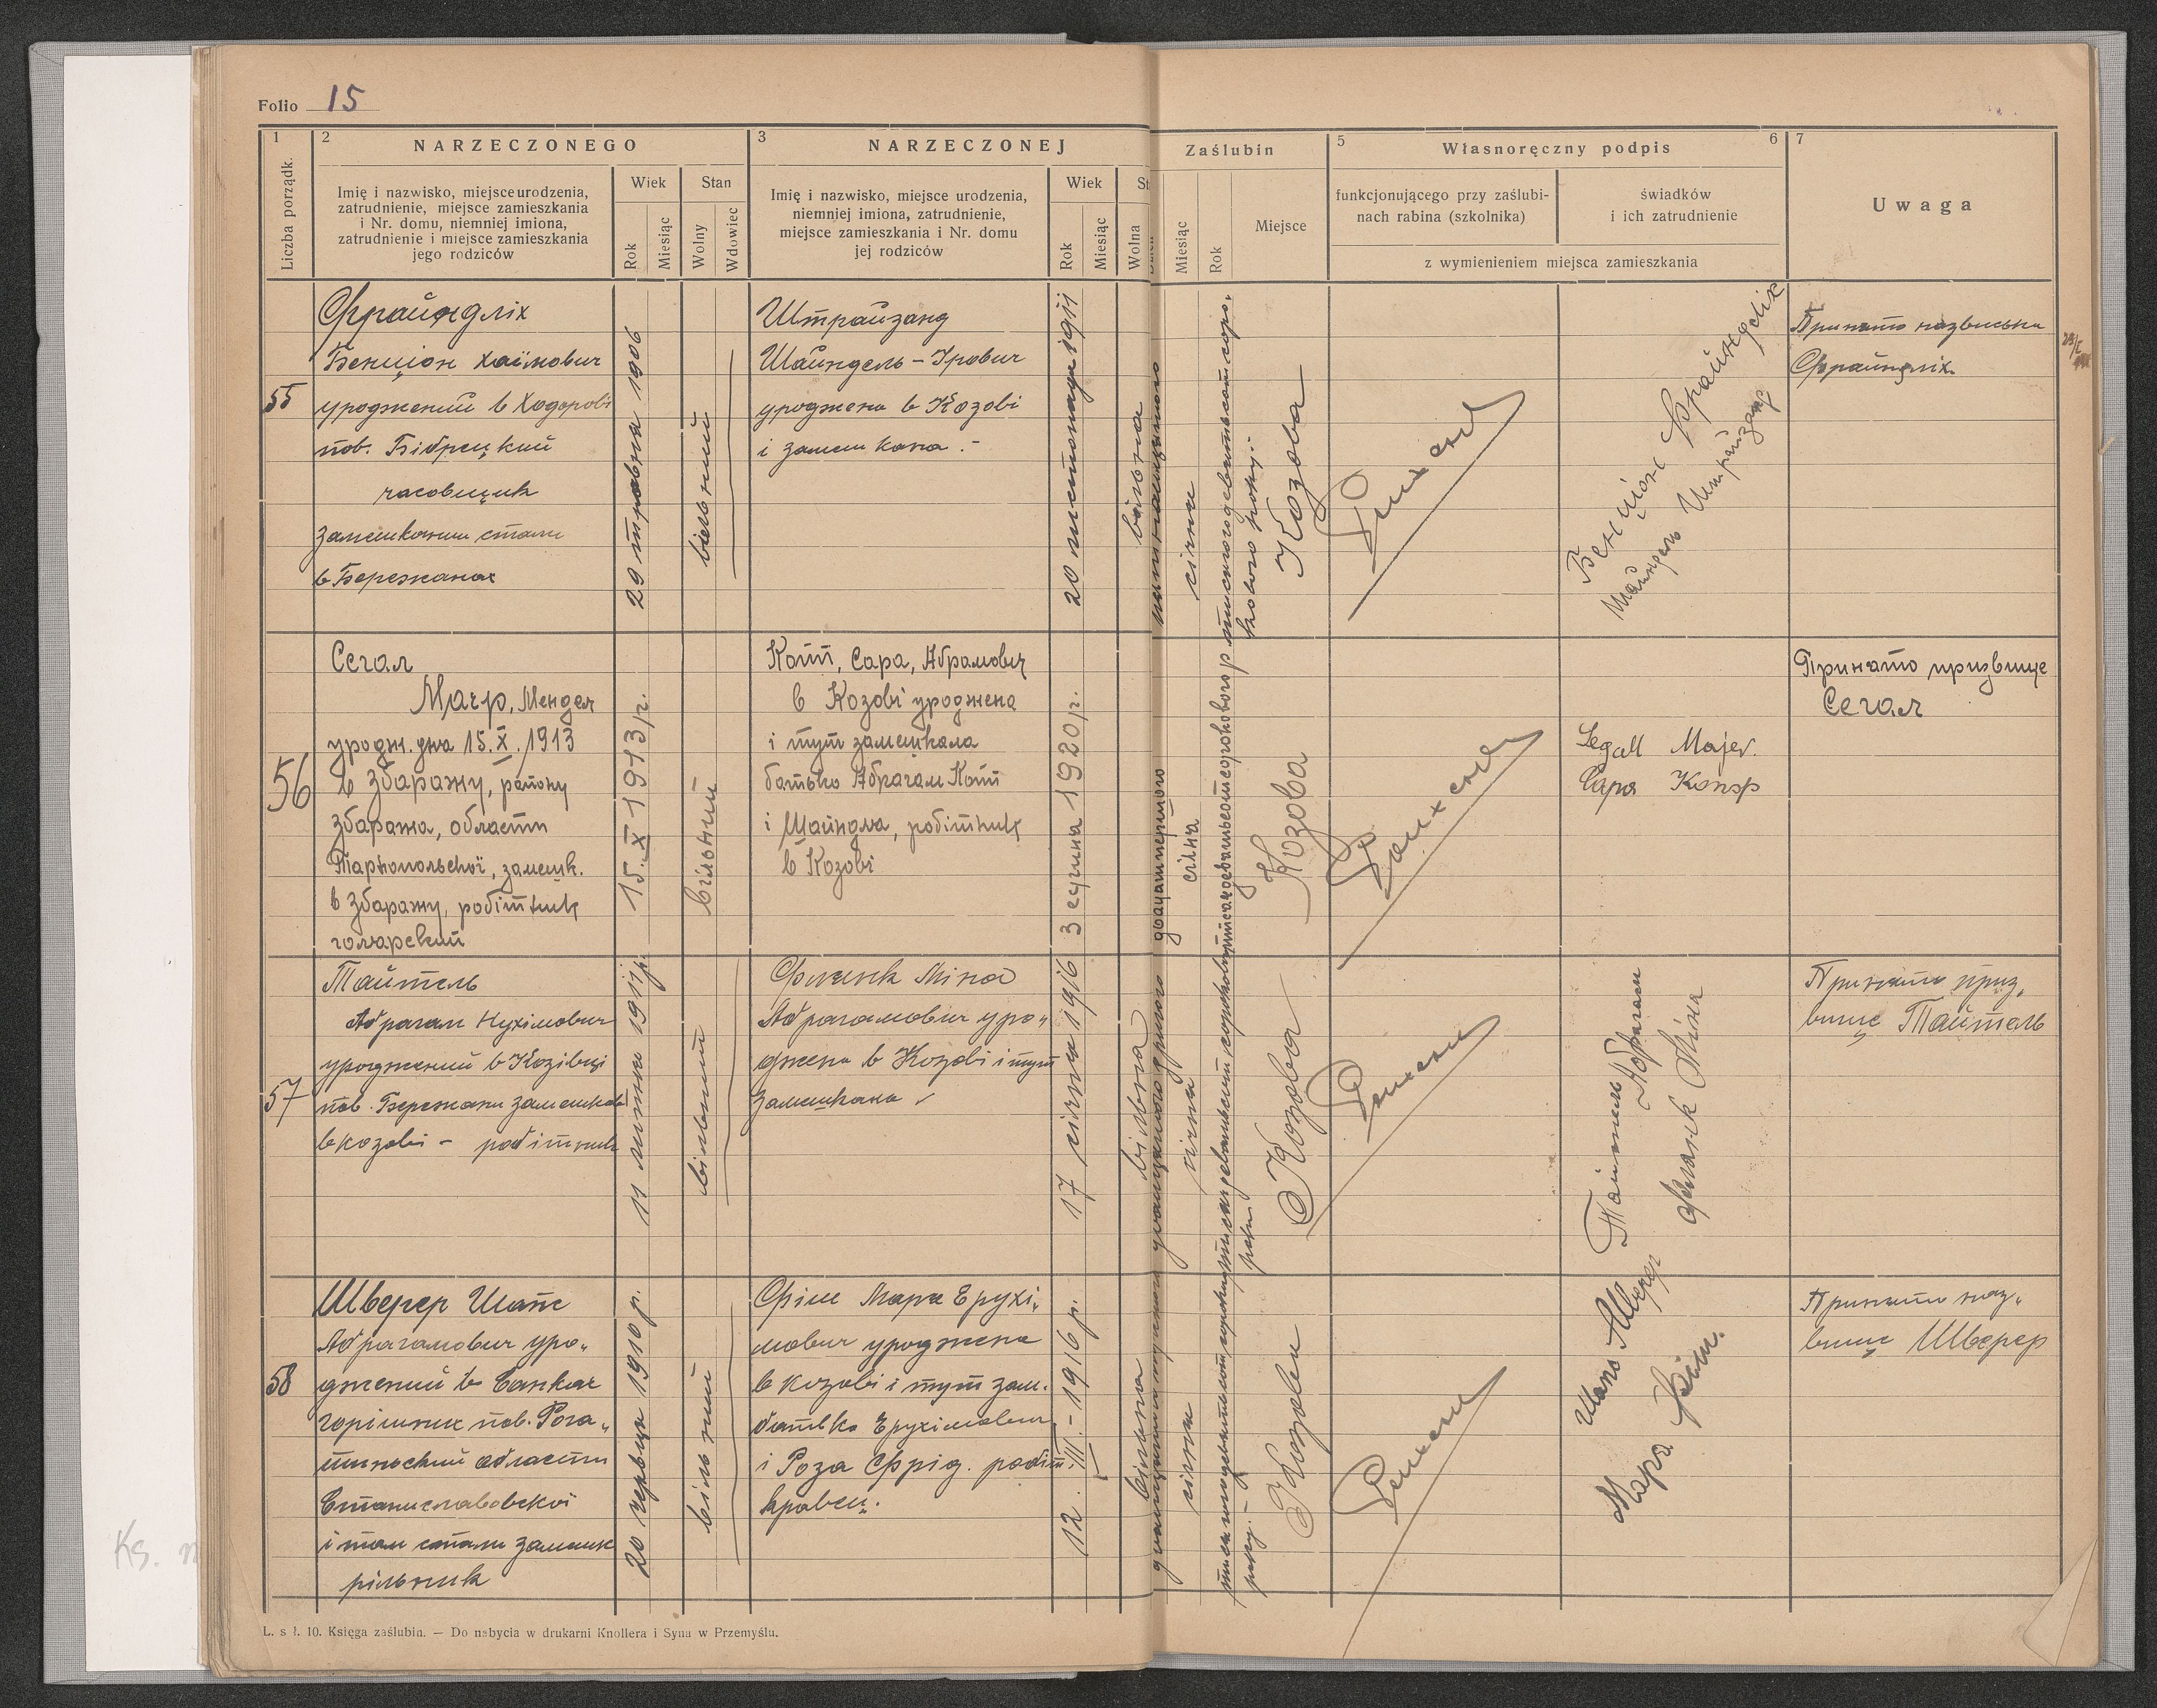 Folio 15
1
Liczba porządk.
2
NARZECZONEGO
Imię i nazwisko, miejsce urodzenia,
zatrudnienie, miejsce zamieszkania
i Nr. domu, niemniej imiona,
zatrudnienie i miejsce zamieszkania
jego rodziców
Wiek
Rok
Miesiąc
Stan
Wolny
Wdowiec
3
NARZECZONEJ
Imię i nazwisko, miejsce urodzenia,
niemniej imiona, zatrudnienie,
miejsce zamieszkania i Nr. domu
jej rodziców
Wiek
Rok
Miesiąc
St
Wolna
Zaślubin
Miesiąc
Rok
Miejsce
5
Własnoręczny podpis
6
funkcjonującego przy zaślubi-
nach rabina (szkolnika)
świadków
i ich zatrudnienie
z wymienieniem miejsca zamieszkania
7
Uwaga
55
Фрайндліх
Бенціон Хаімович
уроджений в Ходорові
пов. Бібрецкий
часовщик
замешкании стали
в Бережанах
29 травня 1906
вільний
Штрайзанд
Шайндель - Ірович
уроджена в Козові
і замешкана . -
20 листопада 1911
вільна
січня
Козова
Бенціон Фрайндліх
Шайндель Штрайзанд
Принято назвиська
Фрайндліх.
56
Сегал
Магр, Мендел
уродж. дня 15.X.1913
в Збаражу, району
Збаража, области
Тарнопольскої, замешк.
в Збаражу, робітник
голярский
15.X 1913 р.
вільний
Копп, Сара, Абрамович
в Козові уроджена
і тут замешкала
батько Абрагам Копп
і Шайндла, робітник
в Козові
3 серпня 1920 р.
січня
Козова
Segall Majer.
Сара Копф
Принято призвище
Сегал
57
Тайтель
Абрагам Нухімович
уроджений в Козівці
пов. Бережани замешкалий
в Козові - робітник
11 липня 1911 р.
вільний
Флинк Міна
Абрагамович уро„
джена в Козові і тут
замешкана
17 січня 1916
вільна
січня
Козова
Тайтель Абрагам
Флинк Міна
Принято приз„
вище Тайтель
58
Шверер Шапс
Абрагамович уро„
джений в Банках
горішних пов. Рога„
тинский области
Станиславовскої
і там стали замешк
рільник
20 червця 1910 р.
вільний
Фіш Мара Ерухі„
мович уроджена
в Козові і тут зам.
батько Ерухімович
і Роза Фрід. робіт.
кравец.
12. III. - 1916 р.
вільна
січня
Козова
Шапс Шверер
Мара Фіш.
Принято наз„
вище Шверер
L. s ł. 10. Księga zaślubin. — Do nabycia w drukarni Knollera i Syna w Przemyślu.
Ks.